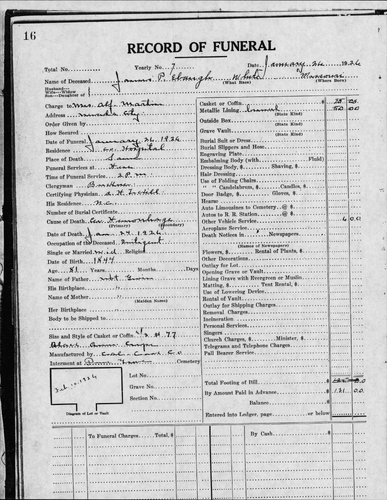 16
RECORD OF FUNERAL
Total No. Yearly No. 7 Date January 26 1926
Name of Deceased James P. White
(What Race) (Where Born)
Husband—
Wife—Widow
Son—Daughter of
Charge to Mrs. Alf Martin
Address City
Order Given by
How Secured
Date of Funeral January 26 1926
Residence Co Hospital
Place of Death Same
Funeral Services at Here
Time of Funeral Service 2 P.m
Clergyman
Certifying Physician
His Residence N.C.
Number of Burial Certificate
Cause of Death Hemorrhage
(Primary) (Secondary)
Date of Death Jan 1926
Occupation of the Deceased
Single or Married Wid Religion
Date of Birth 1844
Age 81 Years Months Days
Name of Father not Given
His Birthplace
Name of Mother
(Maiden Name)
Her Birthplace
Body to be Shipped to
Size and Style of Casket or Coffin # 77
Manufactured by
Interment at Cemetery
Lot No.
Grave No.
Section No.
Diagram of Lot or Vault
Casket or Coffin
Metallic Lining 50 00
(State Kind)
Outside Box
(State Kind)
Grave Vault
(State Kind)
Burial Suit or Dress
Burial Slippers and Hose
Engraving Plate
Embalming Body (with Fluid)
Dressing Body, $ Shaving, $
Hair Dressing
Use of Folding Chairs
" " Candelabrum, $ Candles, $
Door Badge, $ Gloves, $
Hearse
Auto Limousines to Cemetery @ $
Autos to R. R. Station @ $
Other Vehicle Service 6 00
Aeroplane Service
Death Notices in Newspapers
(Names of Newspapers)
Flowers, $ Rental of Plants, $
Other Decorations
Outlay for Lot
Opening Grave or Vault
Lining Grave with Evergreen or Muslin
Matting, $ Tent Rental, $
Use of Lowering Device
Rental of Vault
Outlay for Shipping Charges
Removal Charges
Incineration
Personal Services
Singers
Church Charges, $ Minister, $
Telegrams and Telephone Charges
Pall Bearer Service
Total Footing of Bill
By Amount Paid in Advance 131 00
Balance
Entered into Ledger, page or below
To Funeral Charges, Total, $
By Cash $